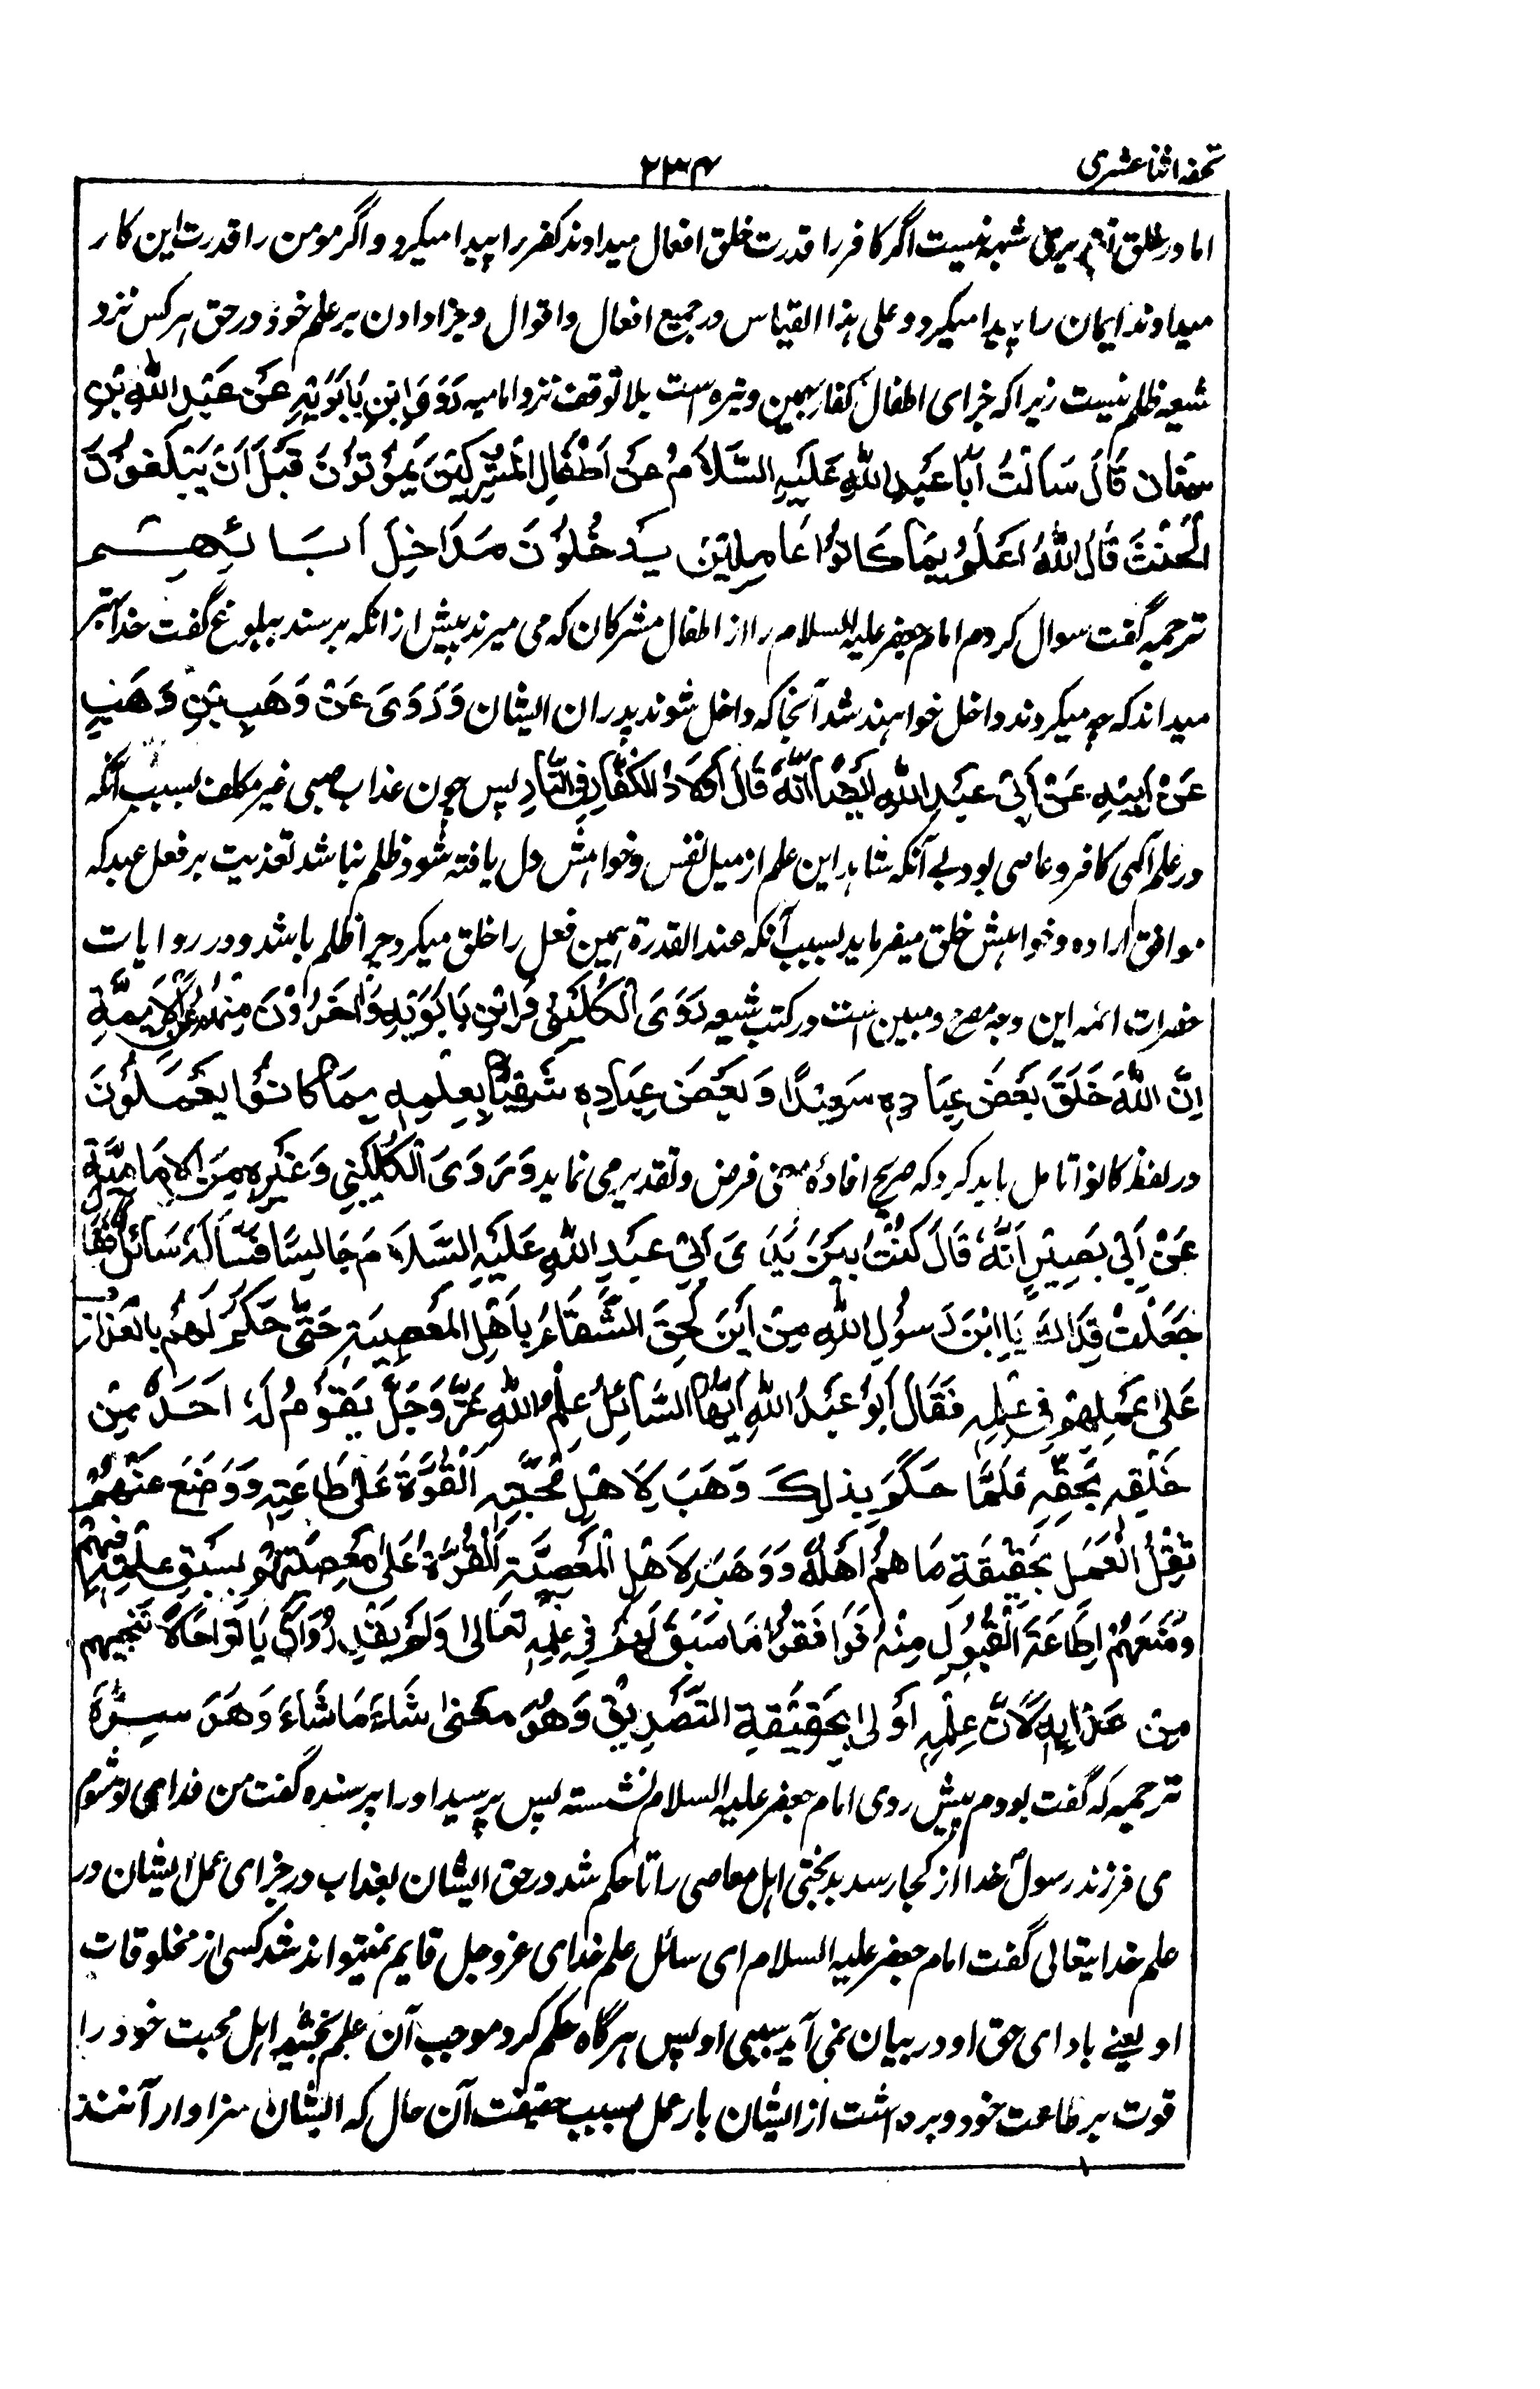 تحفه اثنا عشری
۲۳۴
اما در علق شبهه نیست اگر کافر را قدرت خلق افعال میداوند کفر را پیدا میکرد و اگر مومن را قدرت این کار
میداوند ایمان را پیدا میکرد و علی هذا القیاس در جمیع افعال و اقوال و جزا دادن بر علم خود در حق هر کس نزد
شیعه ظلم نیست زیرا که جزای اطفال کفار بهمین وتیره است بلا توقف نزد امامیه رَوَی ابْنِ بَابَوَیْهِ عَنْ عَبْدِ اللهِ بْنِ
سِنَان قَالَ سَاَلْتُ اَبَا عَبْدِ اللهِ عَلَیْهِ السَّلَامُ عَنْ اَطْفَالِ الْمُشْرِکِیْنَ یَمُوْتُوْنَ قَبْلَ اَنْ یَبْلُغُوْنَ
الْحِنْثَ قَالَ اللهُ اَعْلَمُ بِمَا کَانُوْا عَامِلِیْنَ یَدْخُلُوْنَ مَدَاخِلَ اٰبَائِهِمْ
ترجمه گفت سوال کردم امام جعفر علیه السلام را از اطفال مشرکان که می میرند پیش از انکه برسند ببلوغ گفت خدا بهتر
میداند که چه میکردند داخل خواهند شد آنجا که داخل شوند پدران ایشان وَرَوَی عَنْ وَهَبِ بْنِ وَهَبٍ
عَنْ اَبِیْهِ عَنْ اَبِیْ عَبْدِ اللهِ اَیْضًا اَنَّهُ قَالَ اَوْلَادُ الْکُفَّارِ فِی النَّارِ پس چون عذاب صبی غیر مکلف بسبب آنکه
در علم آلهی کافر و عاصی بود بی آنکه شاهد این علم از میل نفس و خواهش دل یافته شود ظلم نباشد تعذیب بر فعل عبد که
موافق اراده و خواهش خلق میفرماید بسبب آنکه عند القدرة همین فعل را خلق میکرد چرا ظلم باشد و در روایات
حضرات ائمه این وجه مصرح و مبین است در کتب شیعه رَوَی الْکُلَیْنِیُّ وَابْنِ بَابَوَیْهِ وَاٰخَرُوْنَ مِنْهُمْ عَنِ الْاَئِمَّةِ
اِنَّ اللهَ خَلَقَ بَعْضَ عِبَادِهٖ سَعِیْدًا وَبَعْضَ عِبَادِهٖ شَقِیًّا بِعِلْمِهٖ بِمَا کَانُوْا یَعْمَلُوْنَ
در لفظ کانوا تامل باید کرد که صریح افادهٔ معنی فرض و تقدیر می نماید وَرَوَی الْکُلَیْنِی وَغَیْرِهٖ مِنَ الْاِمَامِیَّةِ
عَنْ اَبِیْ بَصِیْرٍ اَنَّهُ قَالَ کُنْتُ بَیْنَ یَدَیْ اَبِیْ عَبْدِ اللهِ عَلَیْهِ السَّلَامُ جَالِسًا فَسَاَلَهُ سَائِلٌ فَقَالَ
جُعِلْتُ فِدَاکَ یَا ابْنَ رَسُوْلِ اللهِ مِنْ اَیْنَ لَحِقَ الشَّقَاءُ بِاَهْلِ الْمَعْصِیَةِ حَتّٰی حَکَمَ لَهُمْ بِالْعَذَابِ
عَلٰی عَمَلِهِمْ فِی عِلْمِهٖ فَقَالَ اَبُوْ عَبْدُ اللهِ اَیُّهَا السَّائِلُ عِلْمُ اللهِ عَزَّ وَجَلَّ یَقُوْمُ لَهُ اَحَدٌ مِنْ
خَلْقِهٖ بِحَقِّهٖ فَلَمَّا حَکَمَ بِذٰلِکَ وَهَبَ لِاَهْلِ مَحَبَّتِهٖ الْقُوَّةَ عَلٰی طَاعَتِهٖ وَوَضَعَ عَنْهُمْ
ثِقْلَ الْعَمَلِ بِحَقِیْقَةِ مَا هُمْ اَهْلُهُ وَوَهَبَ لِاَهْلِ الْمَعْصِیَةِ الْقُوَّةَ عَلٰی مَعْصِیَتِهِمْ بِسَبْقِ عِلْمِهٖ فِیْهِمْ
وَمَنَعَهُمْ اِطَاعَةَ الْقُبُوْلِ مِنْهُ فَوَافَقُوْا مَا سَبَقَ لَهُمْ فِیْ عِلْمِهٖ تَعَالٰی وَلَمْ یَقْدِرُوْا اَنْ یَاتُوْا حَالًا تُنْجِیْهِمْ
مِنْ عَذَابِهٖ لِاَنَّ عِلْمَهُ اَوْلٰی بِحَقِیْقَةِ التَّصْدِیْقِ وَهُوَ مَعْنٰی شَاءَ مَا شَاءَ وَهُوَ سِرُّهُ
ترجمه که گفت بودم پیش روی امام جعفر علیه السلام نشسته پس پرسید او را پرسنده گفت من فدای تو شوم
ی فرزند رسول خدا از کجا رسد بدبختی اهل معاصی را تا حکم شد در حق ایشان بعذاب در جزای عمل ایشان در
علم خدایتعالی گفت امام جعفر علیه السلام ای سائل علم خدای عزوجل قایم نمیتواند شد کسی از مخلوقات
او یعنے بادای حق او در بیان نمی آید سببی او پس هرگاه حکم کرد موجب آن علم بخشید اهل محبت خود را
قوت بر طاعت خود و برداشت از ایشان بار عمل بسبب حقیقت آن حال که ایشان سزاوار آنند